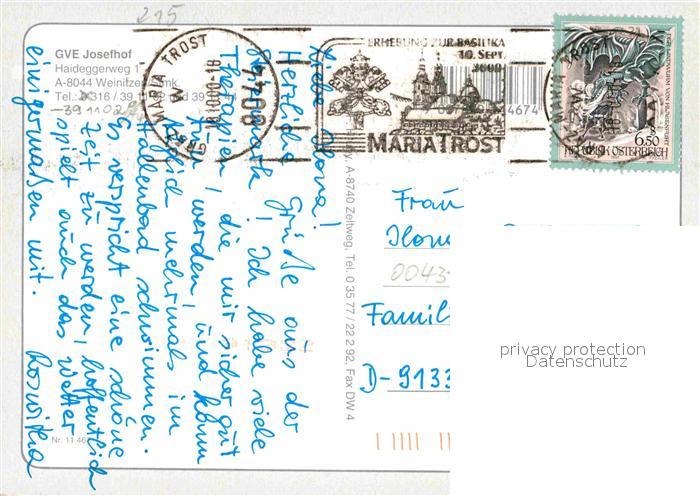 215
GVE Josefhof
Haideggerweg 1
A-8044 Weinitzen
Tel.: 0316 / 39
MARIA TROST
8044
ERHEBUNG ZUR BASILIKA
10. SEPT.
MARIATROST
4674
6.50
REPUBLIK ÖSTERREICH
Liebe Ilona!
Herzliche Grüße aus der
Steiermark! Ich habe viele
Therapien, die mir sicher gut
tun werden, und kann
mehrmals im
Hallenbad schwimmen.
Es verspricht eine schöne
Zeit zu werden, hoffentlich
spielt auch das Wetter
einigermaßen mit. Roswitha
A-8740 Zeltweg, Tel. 0 35 77 / 22 2 92, Fax DW 4
Frau
0043
D-9133
privacy protection
Datenschutz
Nr. 11.46